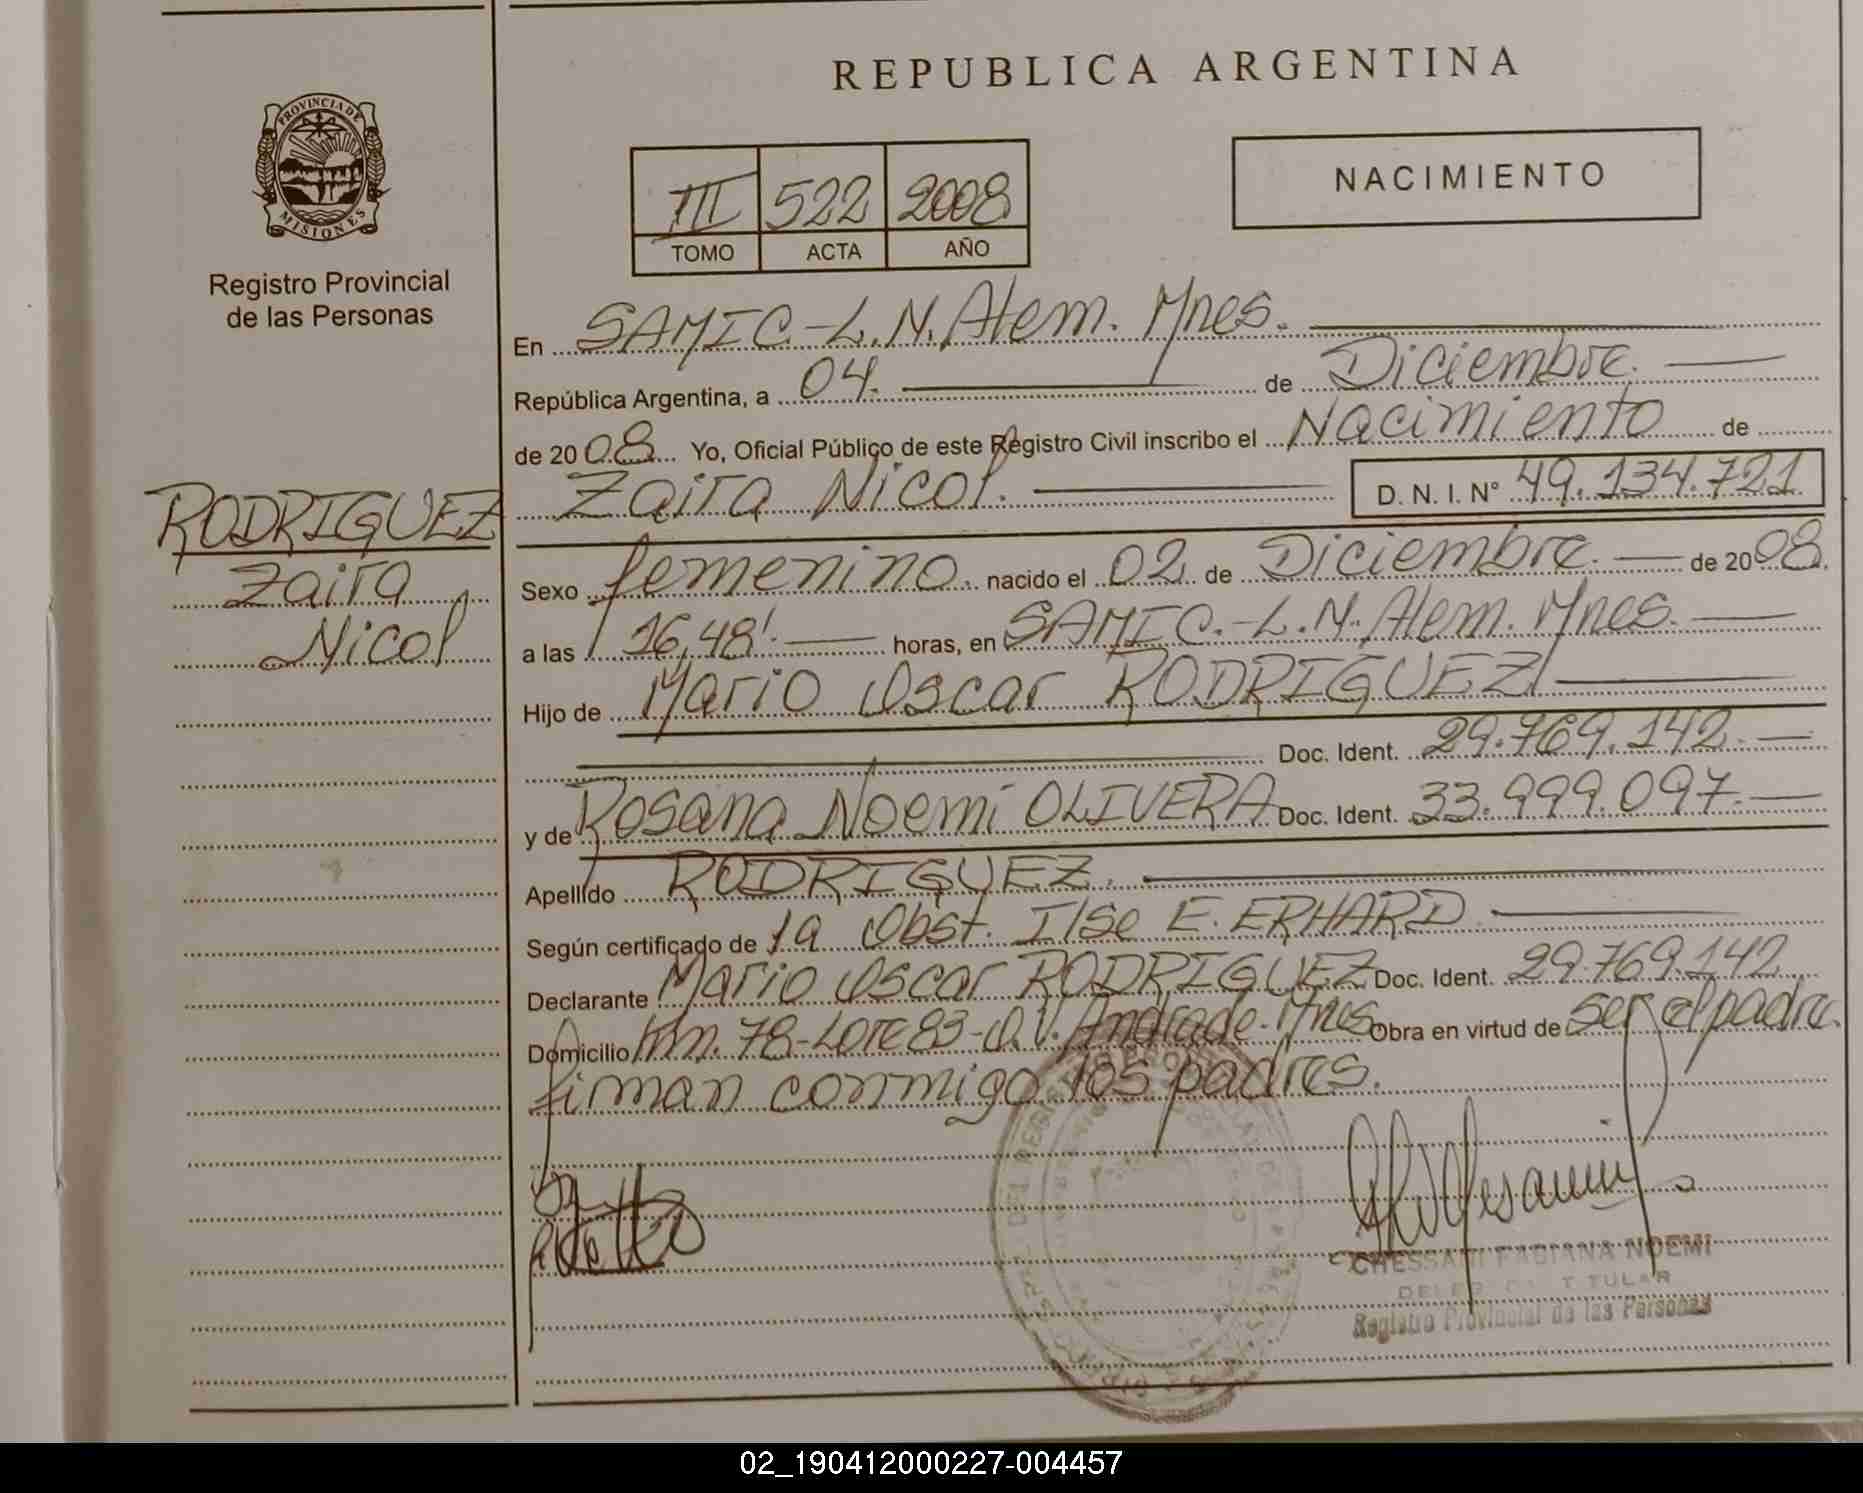 REPUBLICA ARGENTINA
PROVINCIA DE
MISIONES
Registro Provincial
de las Personas
III 522 2008
TOMO ACTA AÑO
NACIMIENTO
En SAMIC.-L.N.Alem. Mnes.
República Argentina, a 04. de Diciembre.
de 2008 Yo, Oficial Público de este Registro Civil inscribo el Nacimiento de
Zaira Nicol. D. N. I. Nº 49.134.721
RODRIGUEZ
Zaira
Nicol
Sexo femenino. nacido el 02 de Diciembre. de 2008.
a las 16,48'. horas, en SAMIC.-L.N.Alem. Mnes.
Hijo de Mario Oscar RODRIGUEZ
Doc. Ident. 29.769.142.
y de Rosana Noemi OLIVERA Doc. Ident. 33.999.097.
Apellido RODRIGUEZ.
Según certificado de la Obst. Ilse E. ERHARD
Declarante Mario Oscar RODRIGUEZ Doc. Ident. 29.769.142
Domicilio Km. 78-Lote 83-O.V. Andrade. Mnes Obra en virtud de ser el padre.
firman conmigo los padres.
CHESSANI FABIANA NOEMI
TITULAR
Registro Provincial de las Personas
02_190412000227-004457